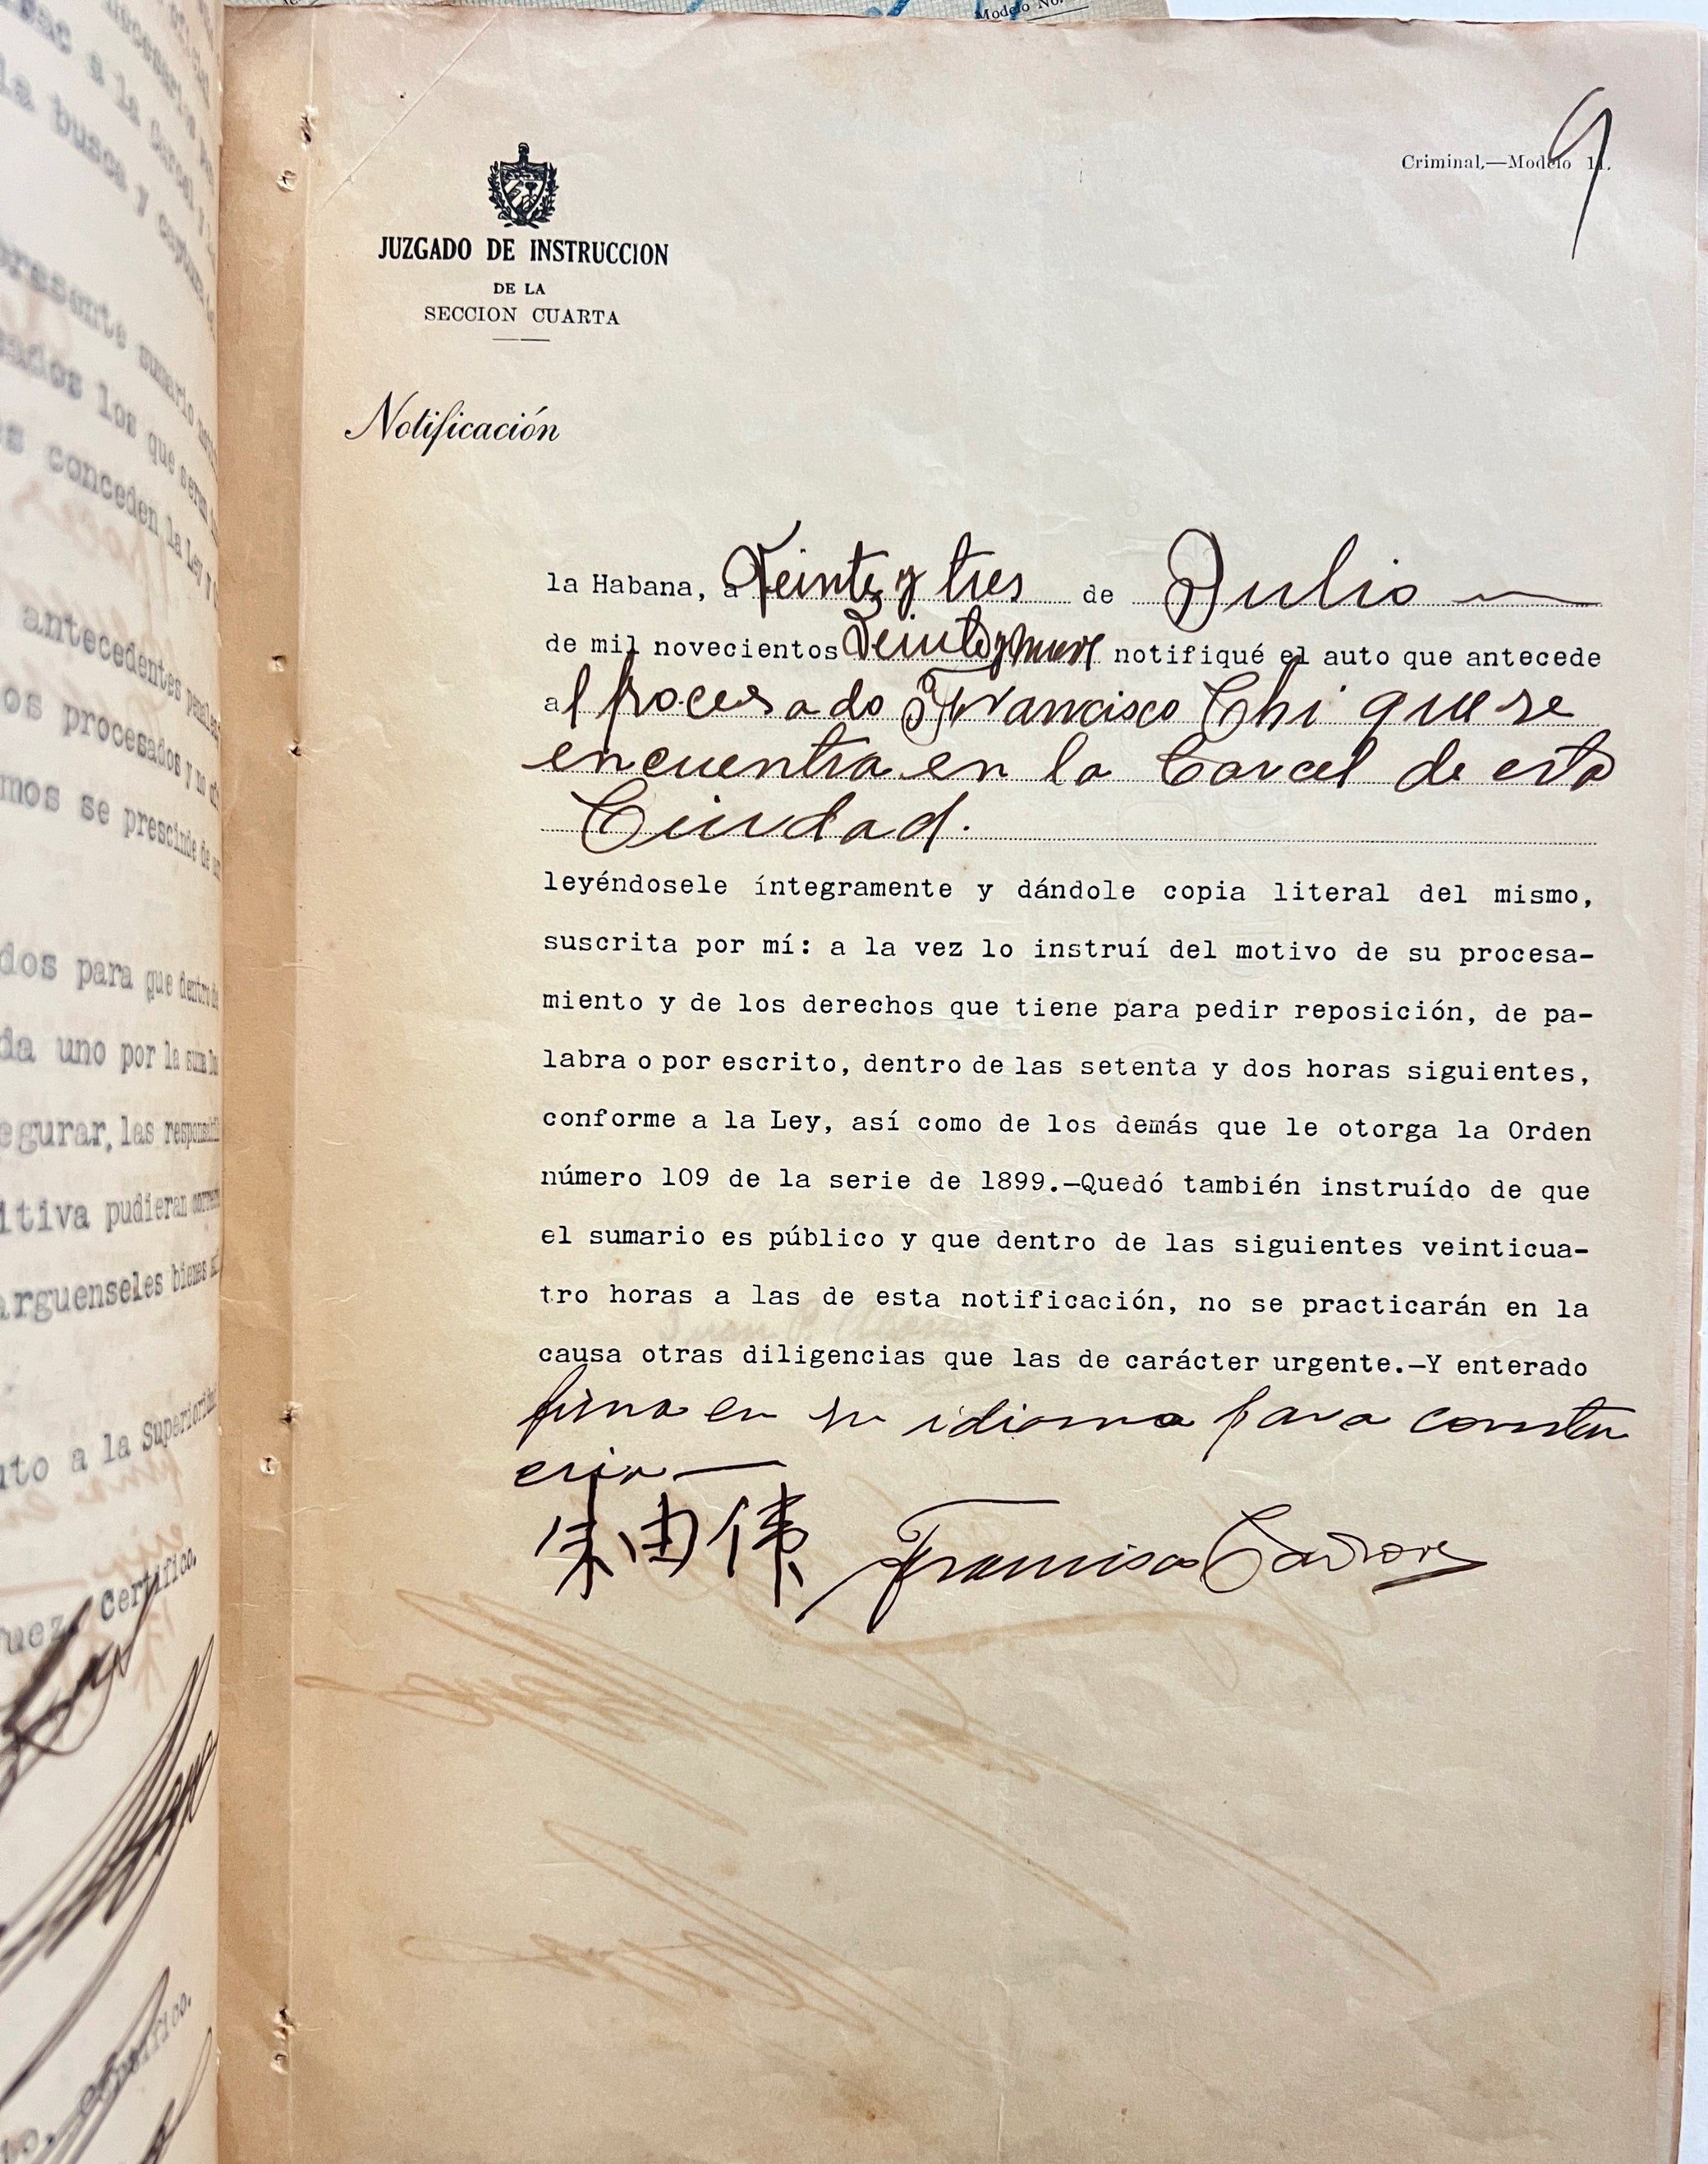 Modelo No.
9
Criminal.—Modelo 11.
JUZGADO DE INSTRUCCION
DE LA
SECCION CUARTA
Notificación
la Habana, a Veinte y tres de Julio
de mil novecientos Veinte y nueve notifiqué el auto que antecede
al procesado Francisco Chi que se
encuentra en la Carcel de esta
Ciudad.
leyéndosele íntegramente y dándole copia literal del mismo,
suscrita por mí: a la vez lo instruí del motivo de su procesa-
miento y de los derechos que tiene para pedir reposición, de pa-
labra o por escrito, dentro de las setenta y dos horas siguientes,
conforme a la Ley, así como de los demás que le otorga la Orden
número 109 de la serie de 1899.—Quedó también instruído de que
el sumario es público y que dentro de las siguientes veinticua-
tro horas a las de esta notificación, no se practicarán en la
causa otras diligencias que las de carácter urgente.—Y enterado
firma en su idioma para constan
cia
朱由偉 Francisco
a la Carcel
la busca y captura
presente sumario
los que seran
conceden la Ley y
antecedentes penales
os procesados y no
mos se prescinde de
dos para que dentro de
da uno por la suma
egurar, las
itiva pudieran
arguenseles bienes
uto a la Superioridad
uez. Certifico.